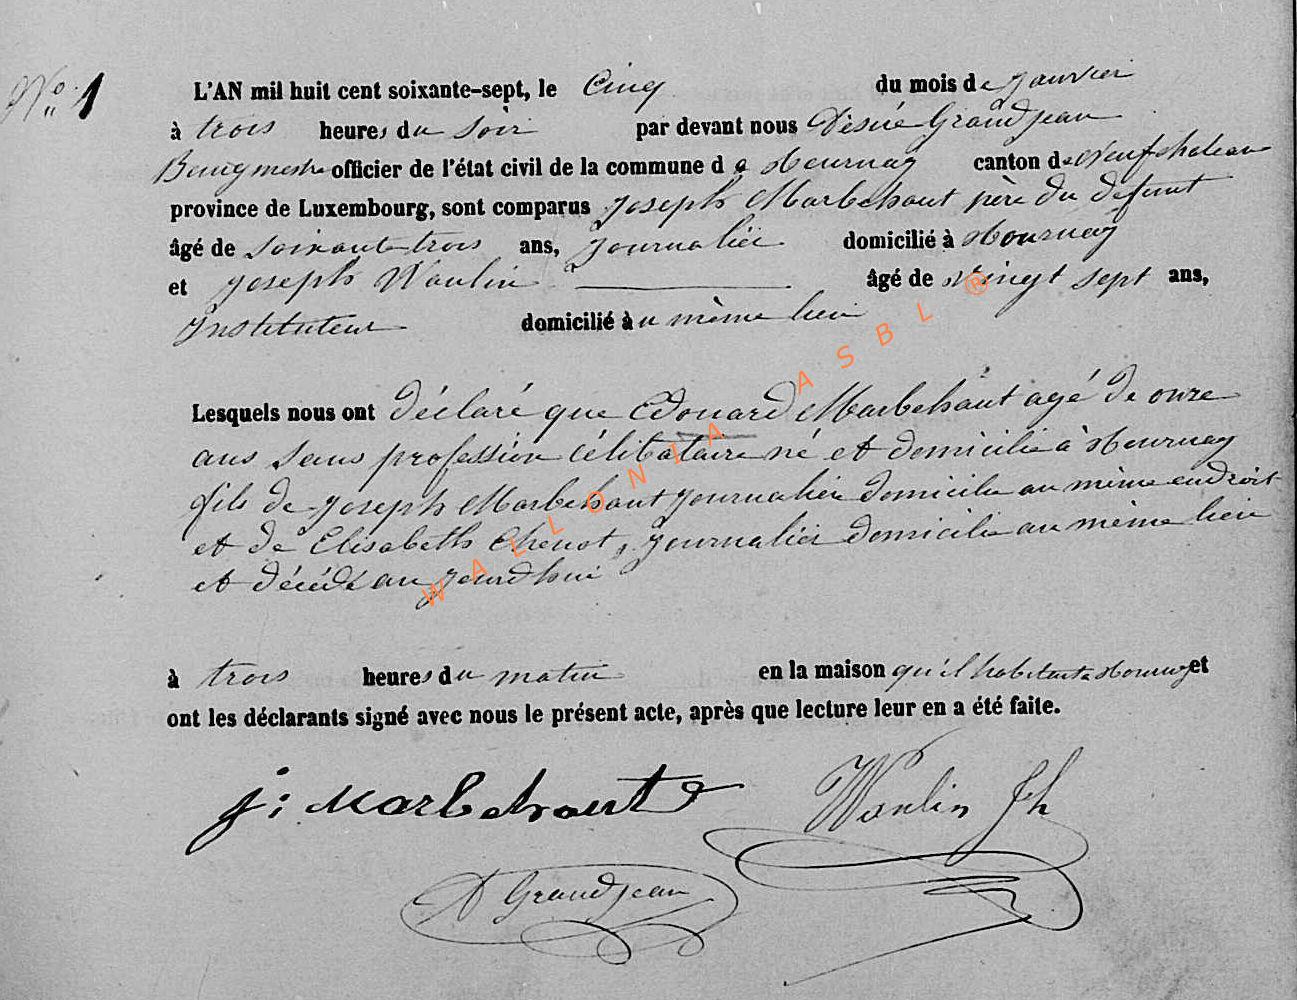 N° 1
L'AN mil huit cent soixante-sept, le Cinq du mois de Janvier
à trois heures du Soir par devant nous Désiré Grandjean
Bourgmestre officier de l'état civil de la commune de Hournay canton de Neufchateau
province de Luxembourg, sont comparus Joseph Marbehant père du defunt
âgé de soixante trois ans, Journalier domicilié à Hournay
et Joseph Waulin âgé de vingt sept ans,
Instituteur domicilié au même lieu
Lesquels nous ont déclaré que Edouard Marbehant agé de onze
ans sans profession célibataire né et domicilié à Hournay
fils de Joseph Marbehant journalier domicilié au même endroit
et de Elisabeth Chenot, journalier domicilié au même lieu
et décédé aujourd'hui
à trois heures du matin en la maison qu'il habitait à Hournay et
ont les déclarants signé avec nous le présent acte, après que lecture leur en a été faite.
j: Marbehant Waulin Jh
D Grandjean
WALLONIA ASBL ®